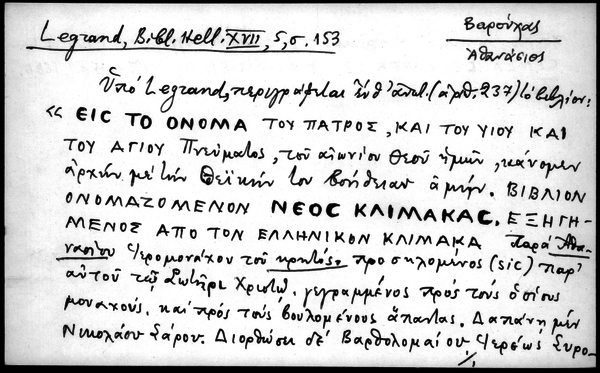 Βαρούχας
Ἀθανάσιος
Legrand, Bibl. Hell. XVII, 5, σ. 153
Ὑπό Legrand, περιγράφεται (ἀριθ. 237) τό βιβλίον:
« ΕΙC ΤΟ ΟΝΟΜΑ ΤΟΥ ΠΑΤΡΟΣ, ΚΑΙ ΤΟΥ ΥΙΟΥ ΚΑΙ
ΤΟΥ ΑΓΙΟΥ Πνεύματος, τοῦ αἰωνίου Θεοῦ ἡμῶν, κάνομεν
ἀρχήν μέ τήν Θεϊκήν του βοήθειαν ἀμήν. ΒΙΒΛΙΟΝ
ΟΝΟΜΑΖΟΜΕΝΟΝ ΝΕΟC ΚΛΙΜΑΚΑC. ΕΞΗΓΗ-
ΜΕΝΟΣ ΑΠΟ ΤΟΝ ΕΛΛΗΝΙΚΟΝ ΚΛΙΜΑΚΑ παρά Ἀθα-
νασίου Ἱερομονάχου τοῦ κρητός προσηλομένος (sic) παρ'
αὐτοῦ τῷ Σωτῆρι Χριστῷ. γεγραμμένος πρός τούς ὁσίους
μοναχούς. καί πρός τούς βουλομένους ἅπαντας. Δαπάνῃ μέν
Νικολάου Σάρου. Διορθώσει δέ Βαρθολομαίου Ἱερέως Συρο-
./.